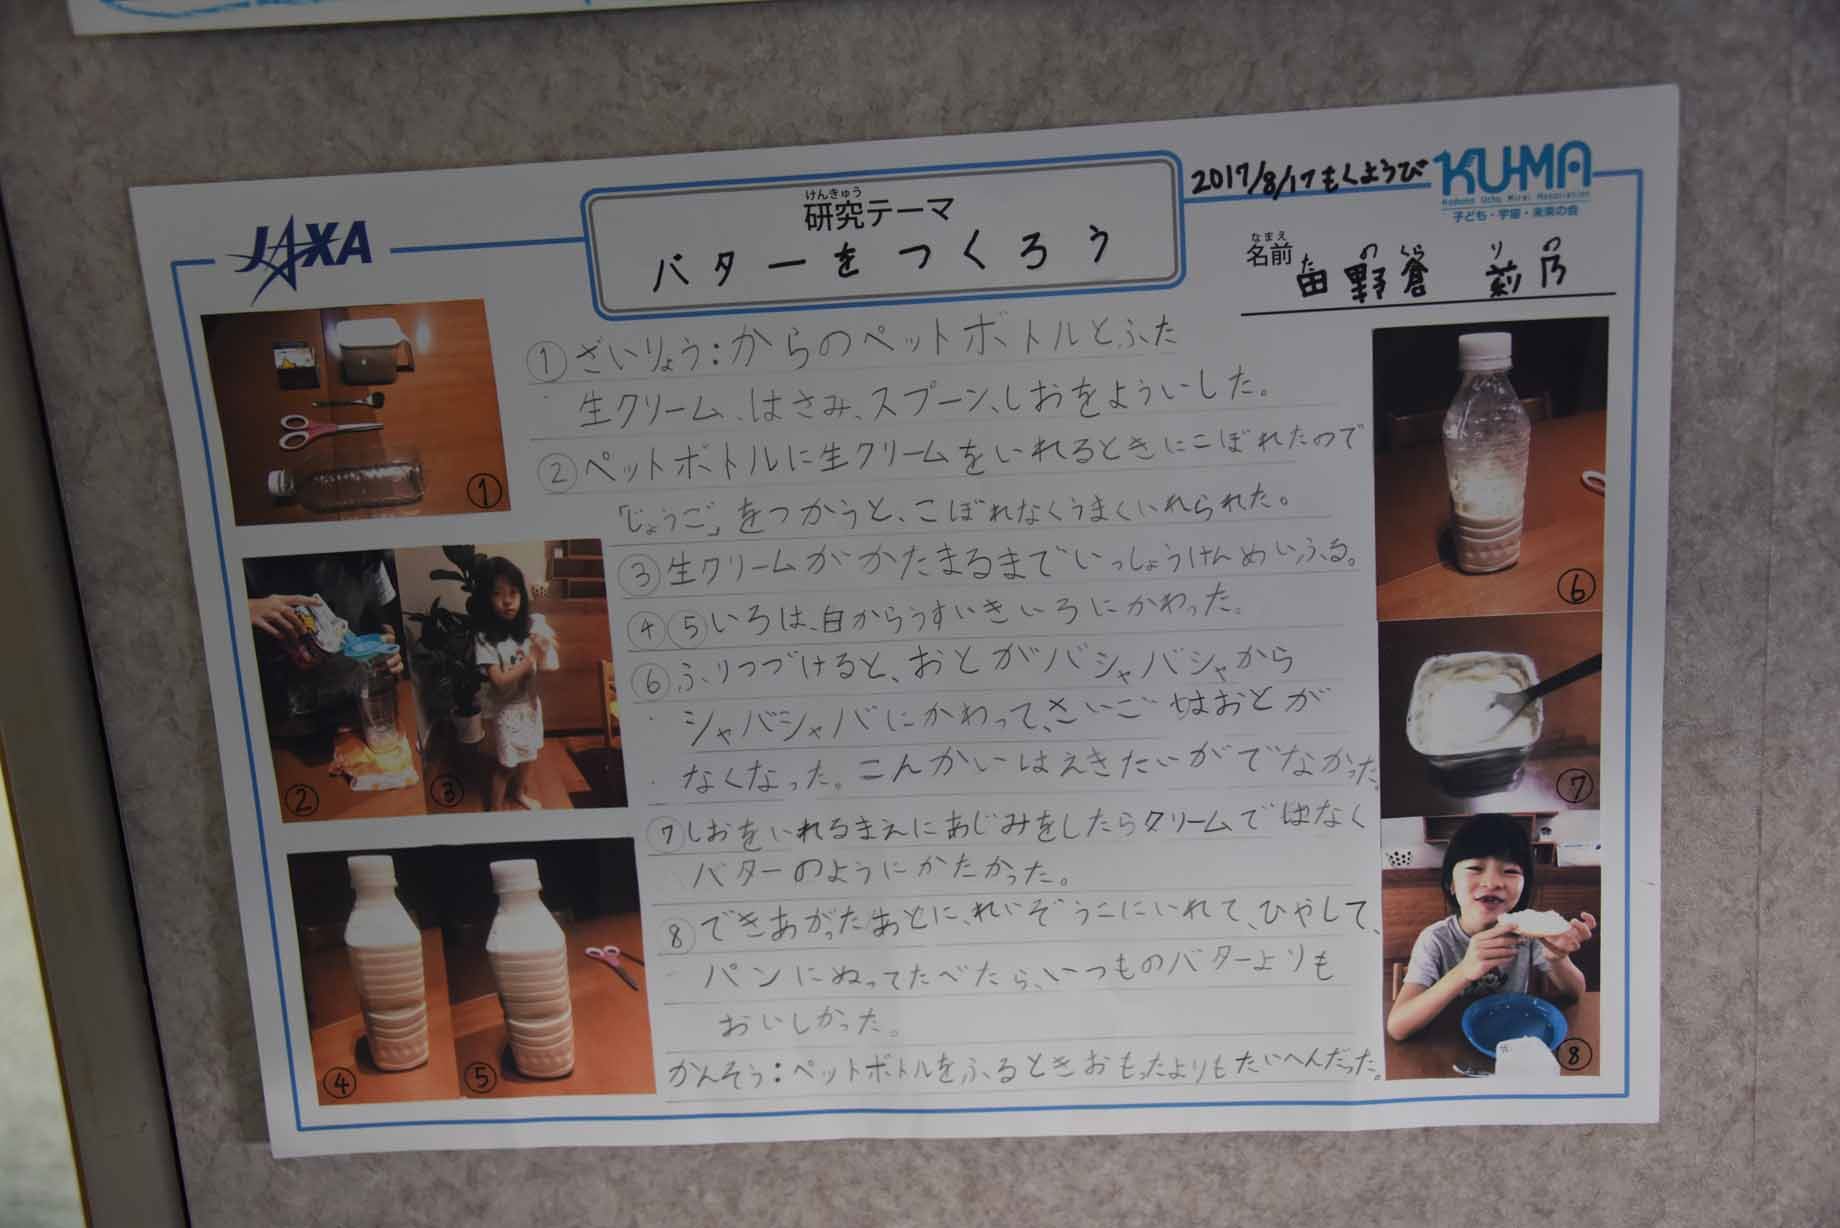 JAXA
けんきゅう
研究テーマ
バターをつくろう
2017/8/17もくようび
KU-MA
Kodomo Uchu Mirai Association
子ども・宇宙・未来の会
なまえ
名前
た の くら り の
田野倉 莉乃
① ざいりょう：からのペットボトルとふた
生クリーム、はさみ、スプーン、しおをよういした。
② ペットボトルに生クリームをいれるときにこぼれたので
「じょうご」をつかうと、こぼれなくうまくいれられた。
③ 生クリームがかたまるまでいっしょうけんめいふる。
④⑤いろは、白からうすいきいろにかわった。
⑥ ふりつづけると、おとがバシャバシャから
シャバシャバにかわって、さいごはおとが
なくなった。こんかいはえきたいがでなかった。
⑦ しおをいれるまえにあじみをしたらクリームではなく
バターのようにかたかった。
⑧ できあがったあとに、れいぞうこにいれて、ひやして、
パンにぬってたべたら、いつものバターよりも
おいしかった。
かんそう：ペットボトルをふるときおもったよりもたいへんだった。
①
②
③
④
⑤
⑥
⑦
⑧